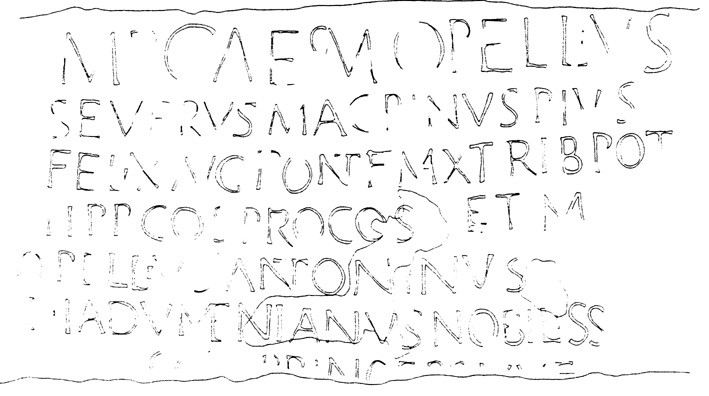 IMP CAES M OPELLIVS
SEVERVS MACRINVS PIVS
FELIX AVG PONTIF MAX TRIB POT
II PP COS PROCOS ET M
OPELLIVS ANTONINVS
DIADVMENIANVS NOBILISS